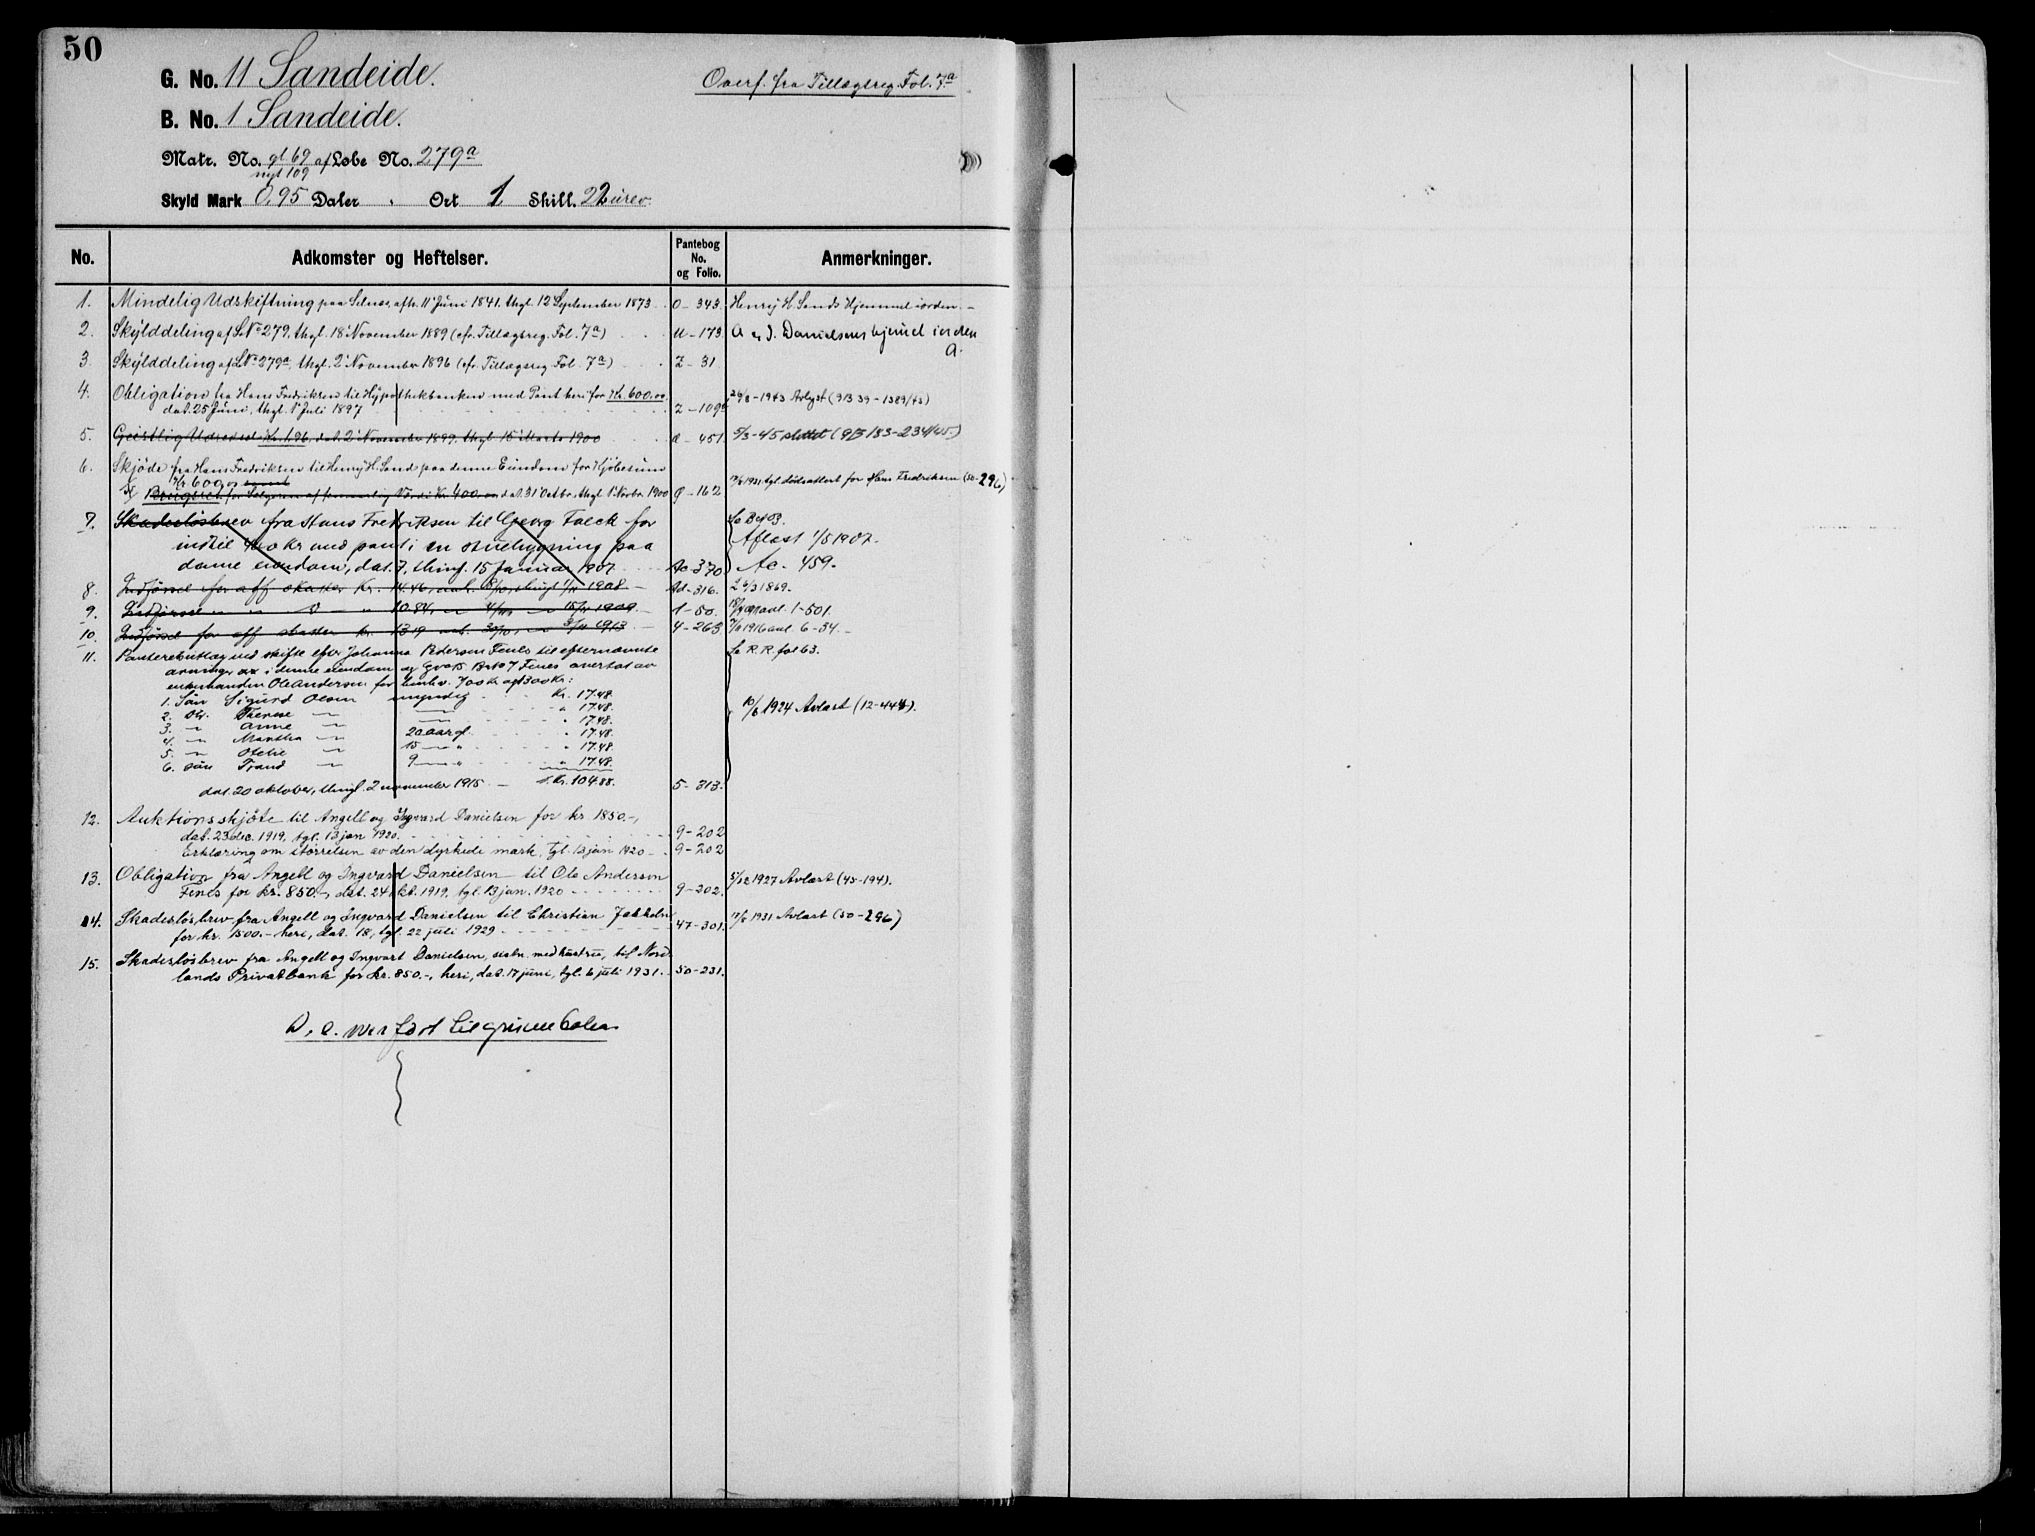 50
G. No. 11 Sandeide. Overf. fra Tillægsreg. Fol. 7a
B. No. 1 Sandeide.
Matr. No. gl 69 af Løbe No. 279a
nyt 109
Skyld Mark 0,95 Daler . Ort 1 Skill. 22 urev.
No. Adkomster og Heftelser. Pantebog No. og Folio. Anmerkninger.
1. Mindelig Udskiftning paa Selnes, afh. 11 Juni 1841, thgl. 12 September 1873 O - 343 Henry H. Sands Hjemmel iorden. -
2. Skylddeling af L.No 279, thgl. 18 November 1889 (cfr. Tillægsreg. Fol. 7a) U - 173 A og I. Danielsens hjemel iorden
A.
3. Skylddeling af L.No 279a, thgl. 2 November 1896 (cfr. Tillægsreg. Fol. 7a) Z - 31
4. Obligation fra Hans Fredriksen til Hypothekbanken med Pant heri for Kr. 600,00
dat. 25 Juni, thgl. 1 Juli 1897 Z - 109 26/8 - 1943 Avlyst (9B 39 - 1389/43)
5. Geistlig Udrede Kr. 1.96, dat. 2 November 1899, thgl. 15 Marts 1900 a - 451 5/3-45 slettet (9B 183-234/45.)
6. Skjøde fra Hans Fredriksen til Henry H. Sand paa denne Eiendom for Kjøbesum
Kr 600,00 samt
Brugsret for Sælgeren af femaarlig Værdi Kr. 400,00 dat. 31 Octbr., thgl 1 Novbr. 1900 g - 162 1931 tgl. dødsattest for Hans Fredriksen (50-296)
7. Skadesløsbrev fra Hans Fredriksen til Georg Falck for Se B et B.
indtil 400 kr med pant i en stuebygning paa Aflæst 1/5 1907.
denne eiendom, dat. 7, thinf. 15 Januar 1907 Ac 370 Ac - 459.
8. Indførsel for off skatter Kr. 14.46, anh. 8/10, thingl 1/11 1908 - Ad - 316.
9. Indførsel " " " 10.84, " 4/10, " 15/11 1909 - 1 - 50. avl. 1-501.
10. Indførsel for off skatter kr. 13.19 anh. 30/10, " 3/11 1913 - 4 - 263 1916 avl. 6-34. -
11. Panteretutlæg ved skifte efter Johanna Pedersen Finnes til efternævnte Se R. R. fol 63.
arvinger ax i denne eiendom og Gno 15 Bno 7 Finnes overtat av
enkemanden Ole Andersen for henhv. 700 kr og 1300 kr:
1. Søn Sigurd Olsen myndig Kr. 17.48. 10/6 1924 Avlæst (12-444).
2. Dtr. Therese " " " 17.48.
3. " Anne " " " 17.48.
4. " Martha " 20 aar gl. " 17.48.
5. " Otelie " 15 " " " 17.48.
6. søn Trand " 9 " " " 17.48.
dat. 20 oktober, thingl. 2 november 1915 - S. Kr. 104.88. 5 - 313.
12. Auktionsskjøte til Angell og Ingvard Danielsen for kr. 1850.-,
dat. 23 dec. 1919, tgl. 13 jan 1920. 9 - 202
Erklæring om størrelsen av den dyrkede mark, tgl. 13 jan 1920 9 - 202
13. Obligation fra Angell og Ingvard Danielsen til Ole Andersen 5/12 1927 Avlæst (45-194).
Finnes for kr. 850.-, dat. 24 okt. 1919, tgl. 13 jan. 1920 9-202.
14. Skadesløsbrev fra Angell og Ingvard Danielsen til Christian Jakholn 1931 Avlæst (50-296)
for kr. 1500.- heri, dat. 18, tgl. 22 juli 1929 47-301.
15. Skadesløsbrev fra Angell og Ingvart Danielsen, sistn. med hustru, til Nord-
lands Privatbank for kr. 850.-, heri, dat. 17 juni, tgl. 6 juli 1931. 50-231.